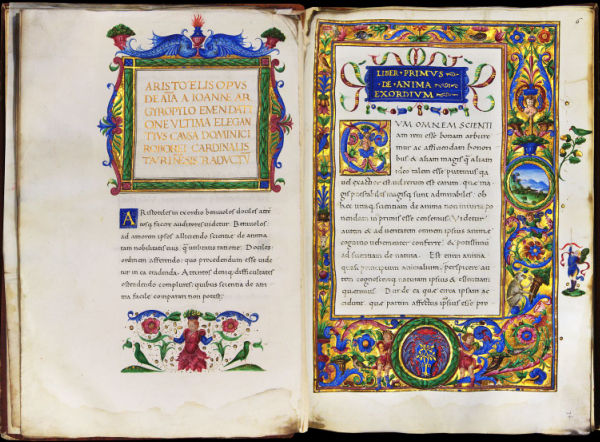 ARISTOTELIS OPVS
DE AĪA A IOANNE AR
GYROPILO EMENDATI
ONE VLTIMA ELEGAN
TIVS CAVSA DOMINICI
ROBOREI CARDINALIS
TAVRINENSIS TRADVCTV
Aristoteles in exordio beniuolos dociles atten
tosq facere auditores uidetur. Beniuolos:
ad amorem ipsos alliciendo scientiae de anima
tam nobilitate eius q̄ utilitate ratione. Dociles:
ordinem asserendo: quo procedendum esse uide
tur in ea tradenda. Attentos deniq difficultates
ostendendo complures: quibus scientia de ani
ma facile comparari non potest.
LIBER PRIMVS
DE ANIMA
EXORDIVM
CVM OMNEM SCIENTI
am rem esse bonam arbitre
mur ac afficiendam honori
bus & aliam magis q̄ aliam
ideo talem esse putemus quia
uel exactior est uel rerum est earum quae ma
gis praestabiles magisq sunt admirabiles: ob
haec utraq scientiam de anima non iniuria po
nendam in primis esse censemus. Videtur
autem & ad ueritatem omnem ipsius animae
cognitio uehementer conferre: & potissimum
ad scientiam de natura. Est enim anima
quasi principium animalium. perspicere au
tem cognoscereq naturam ipsius & essentiam
quaerimus. Deinde ea quae circa ipsam ac
cidunt. quorum partim affectus ipsius esse pro
6